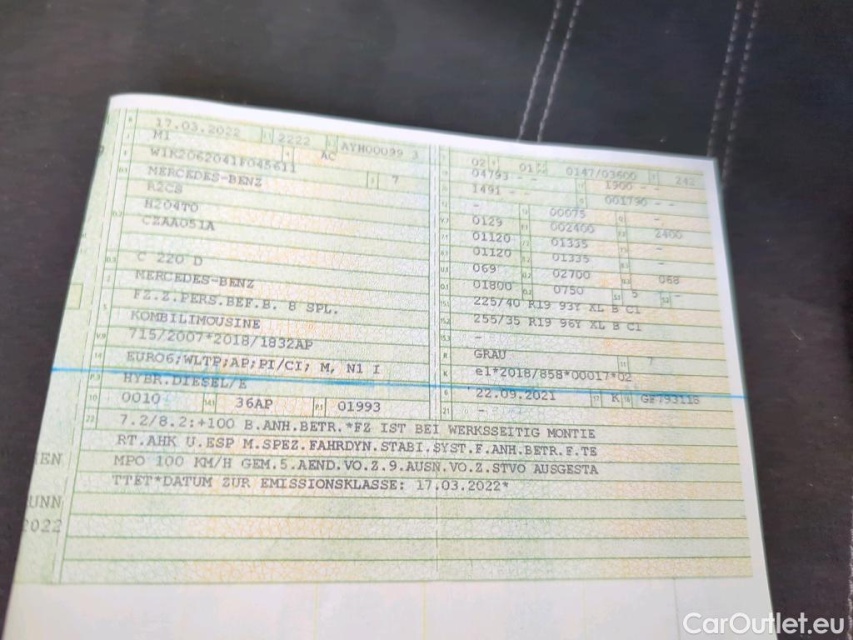 17.03.2022 2222 AYH00099 3
M1 AC
W1K2062041F045611
MERCEDES-BENZ 7
R2CS
H204T0
CZAA051A
C 220 D
MERCEDES-BENZ
FZ.Z.PERS.BEF.B. 8 SPL.
KOMBILIMOUSINE
715/2007*2018/1832AP
EURO6;WLTP;AP;PI/CI; M, N1 I
HYBR.DIESEL/E
0010 36AP 01993
02 01 0147/03600 242
04793 - - 1900 - -
1491 - - 001790 - -
- 00075 -
0129 002400 2400
01120 01335 -
01120 01335 -
069 02700 068
01800 0750 5 -
225/40 R19 93Y XL B C1
255/35 R19 96Y XL B C1
-
GRAU 7
e1*2018/858*00017*02
22.09.2021 K
-
7.2/8.2:+100 B.ANH.BETR.*FZ IST BEI WERKSSEITIG MONTIE
RT.AHK U.ESP M.SPEZ.FAHRDYN.STABI.SYST.F.ANH.BETR.F.TE
MPO 100 KM/H GEM.5.AEND.VO.Z.9.AUSN.VO.Z.STVO AUSGESTA
TTET*DATUM ZUR EMISSIONSKLASSE: 17.03.2022*
EN
UNN
2022
CarOutlet.eu